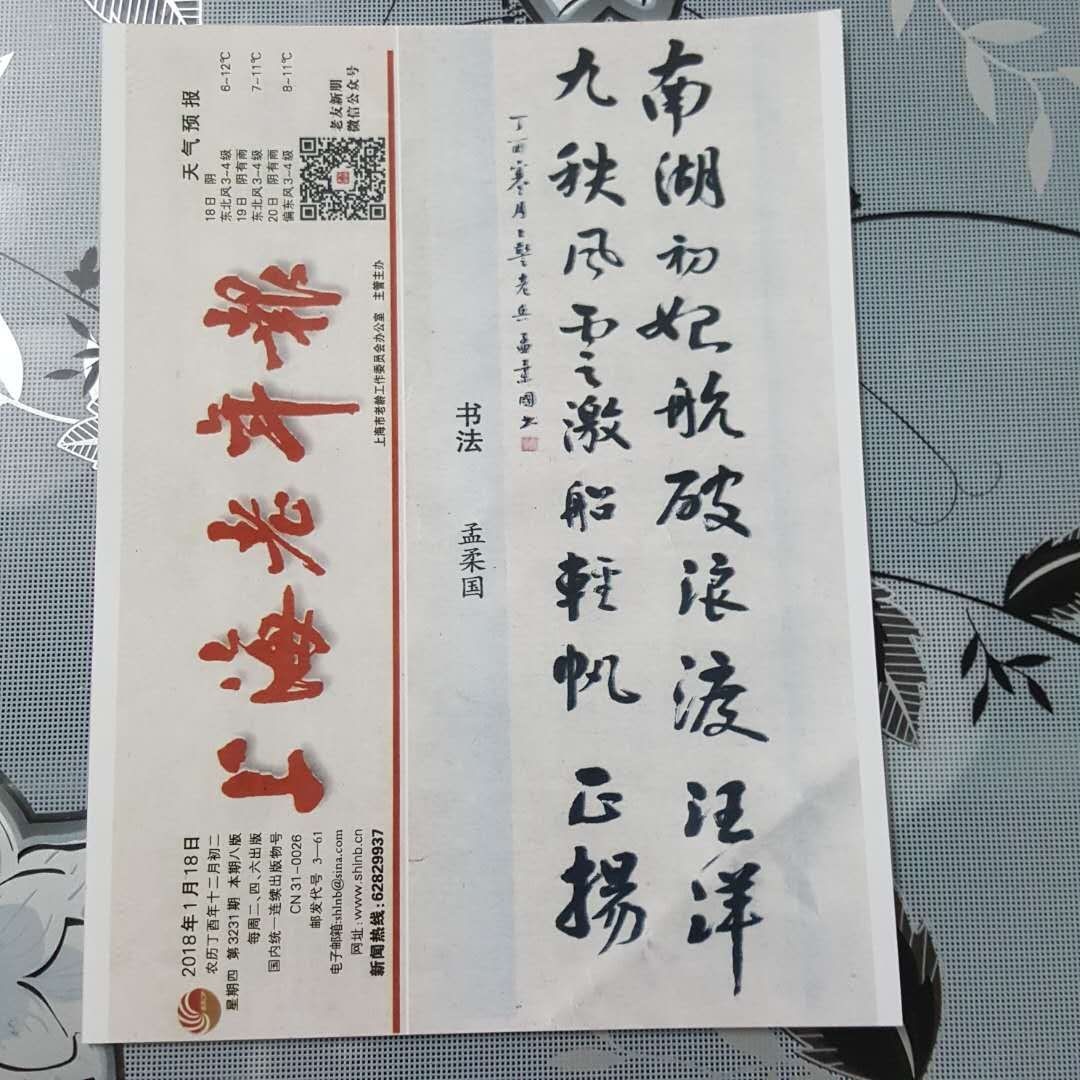 2018年1月18日
农历丁酉年十二月初二
星期四 第3231期 本期八版
每周二、四、六出版
国内统一连续出版物号
CN 31-0026
邮发代号 3—61
电子邮箱:shlnb@sina.com
网址:www.shlnb.cn
新闻热线:62829937
上海老年报
上海市老龄工作委员会办公室 主管主办
天气预报
18日 阴 6-12℃
东北风3-4级
19日 阴有雨 7-11℃
东北风3-4级
20日 阴有雨 8-11℃
偏东风3-4级
老友新朋
微信公众号
南湖初起航破浪渡汪洋
九秩风雲激船輕帆正揚
丁酉寒月上警老兵孟柔国书
书法 孟柔国